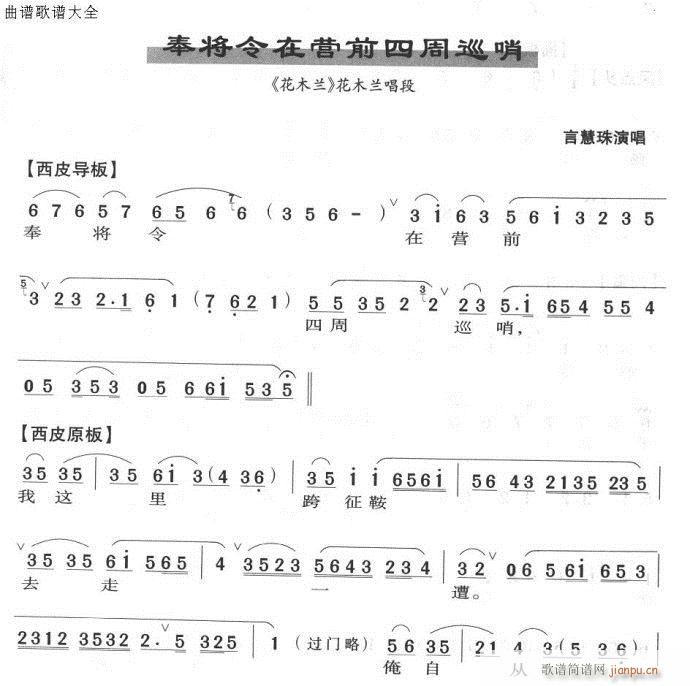 曲谱歌谱大全
奉将令在营前四周巡哨
《花木兰》花木兰唱段
言慧珠演唱
【西皮导板】
6 7 6 5 7 6 5 6 7 6 ( 3 5 6 - ) ∨ 3 i 6 3 5 6 i 3 2 3 5
奉 将 令 在 营 前
5 3 ∨ 2 3 2·1 6 1 ( 7 6 2 1 ) 5 5 3 5 5 2 3 2 ∨ 2 3 5·i 6 5 4 5 5 4
四 周 巡 哨,
0 5 3 5 3 0 5 6 6 i 5 3 5
【西皮原板】
3 5 3 5 | 3 5 6 i 3 ( 4 3 6 ) | 3 5 i i 6 5 6 i | 5 6 4 3 2 1 3 5 2 3 5
我 这 里 跨 征 鞍
∨ 3 5 3 5 6 i 5 6 5 | 4 ∨ 3 5 2 3 5 6 4 3 2 3 4 | 3 2 ∨ 0 6 5 6 i 6 5 3
去 走 一 遭。
2 3 1 2 3 5 3 2 2· 5 3 2 5 | 1 (过门略) 5 6 3 5 | 2 1 4 3 ( 5 3 6 )
俺 自 从
歌谱简谱网
jianpu.cn